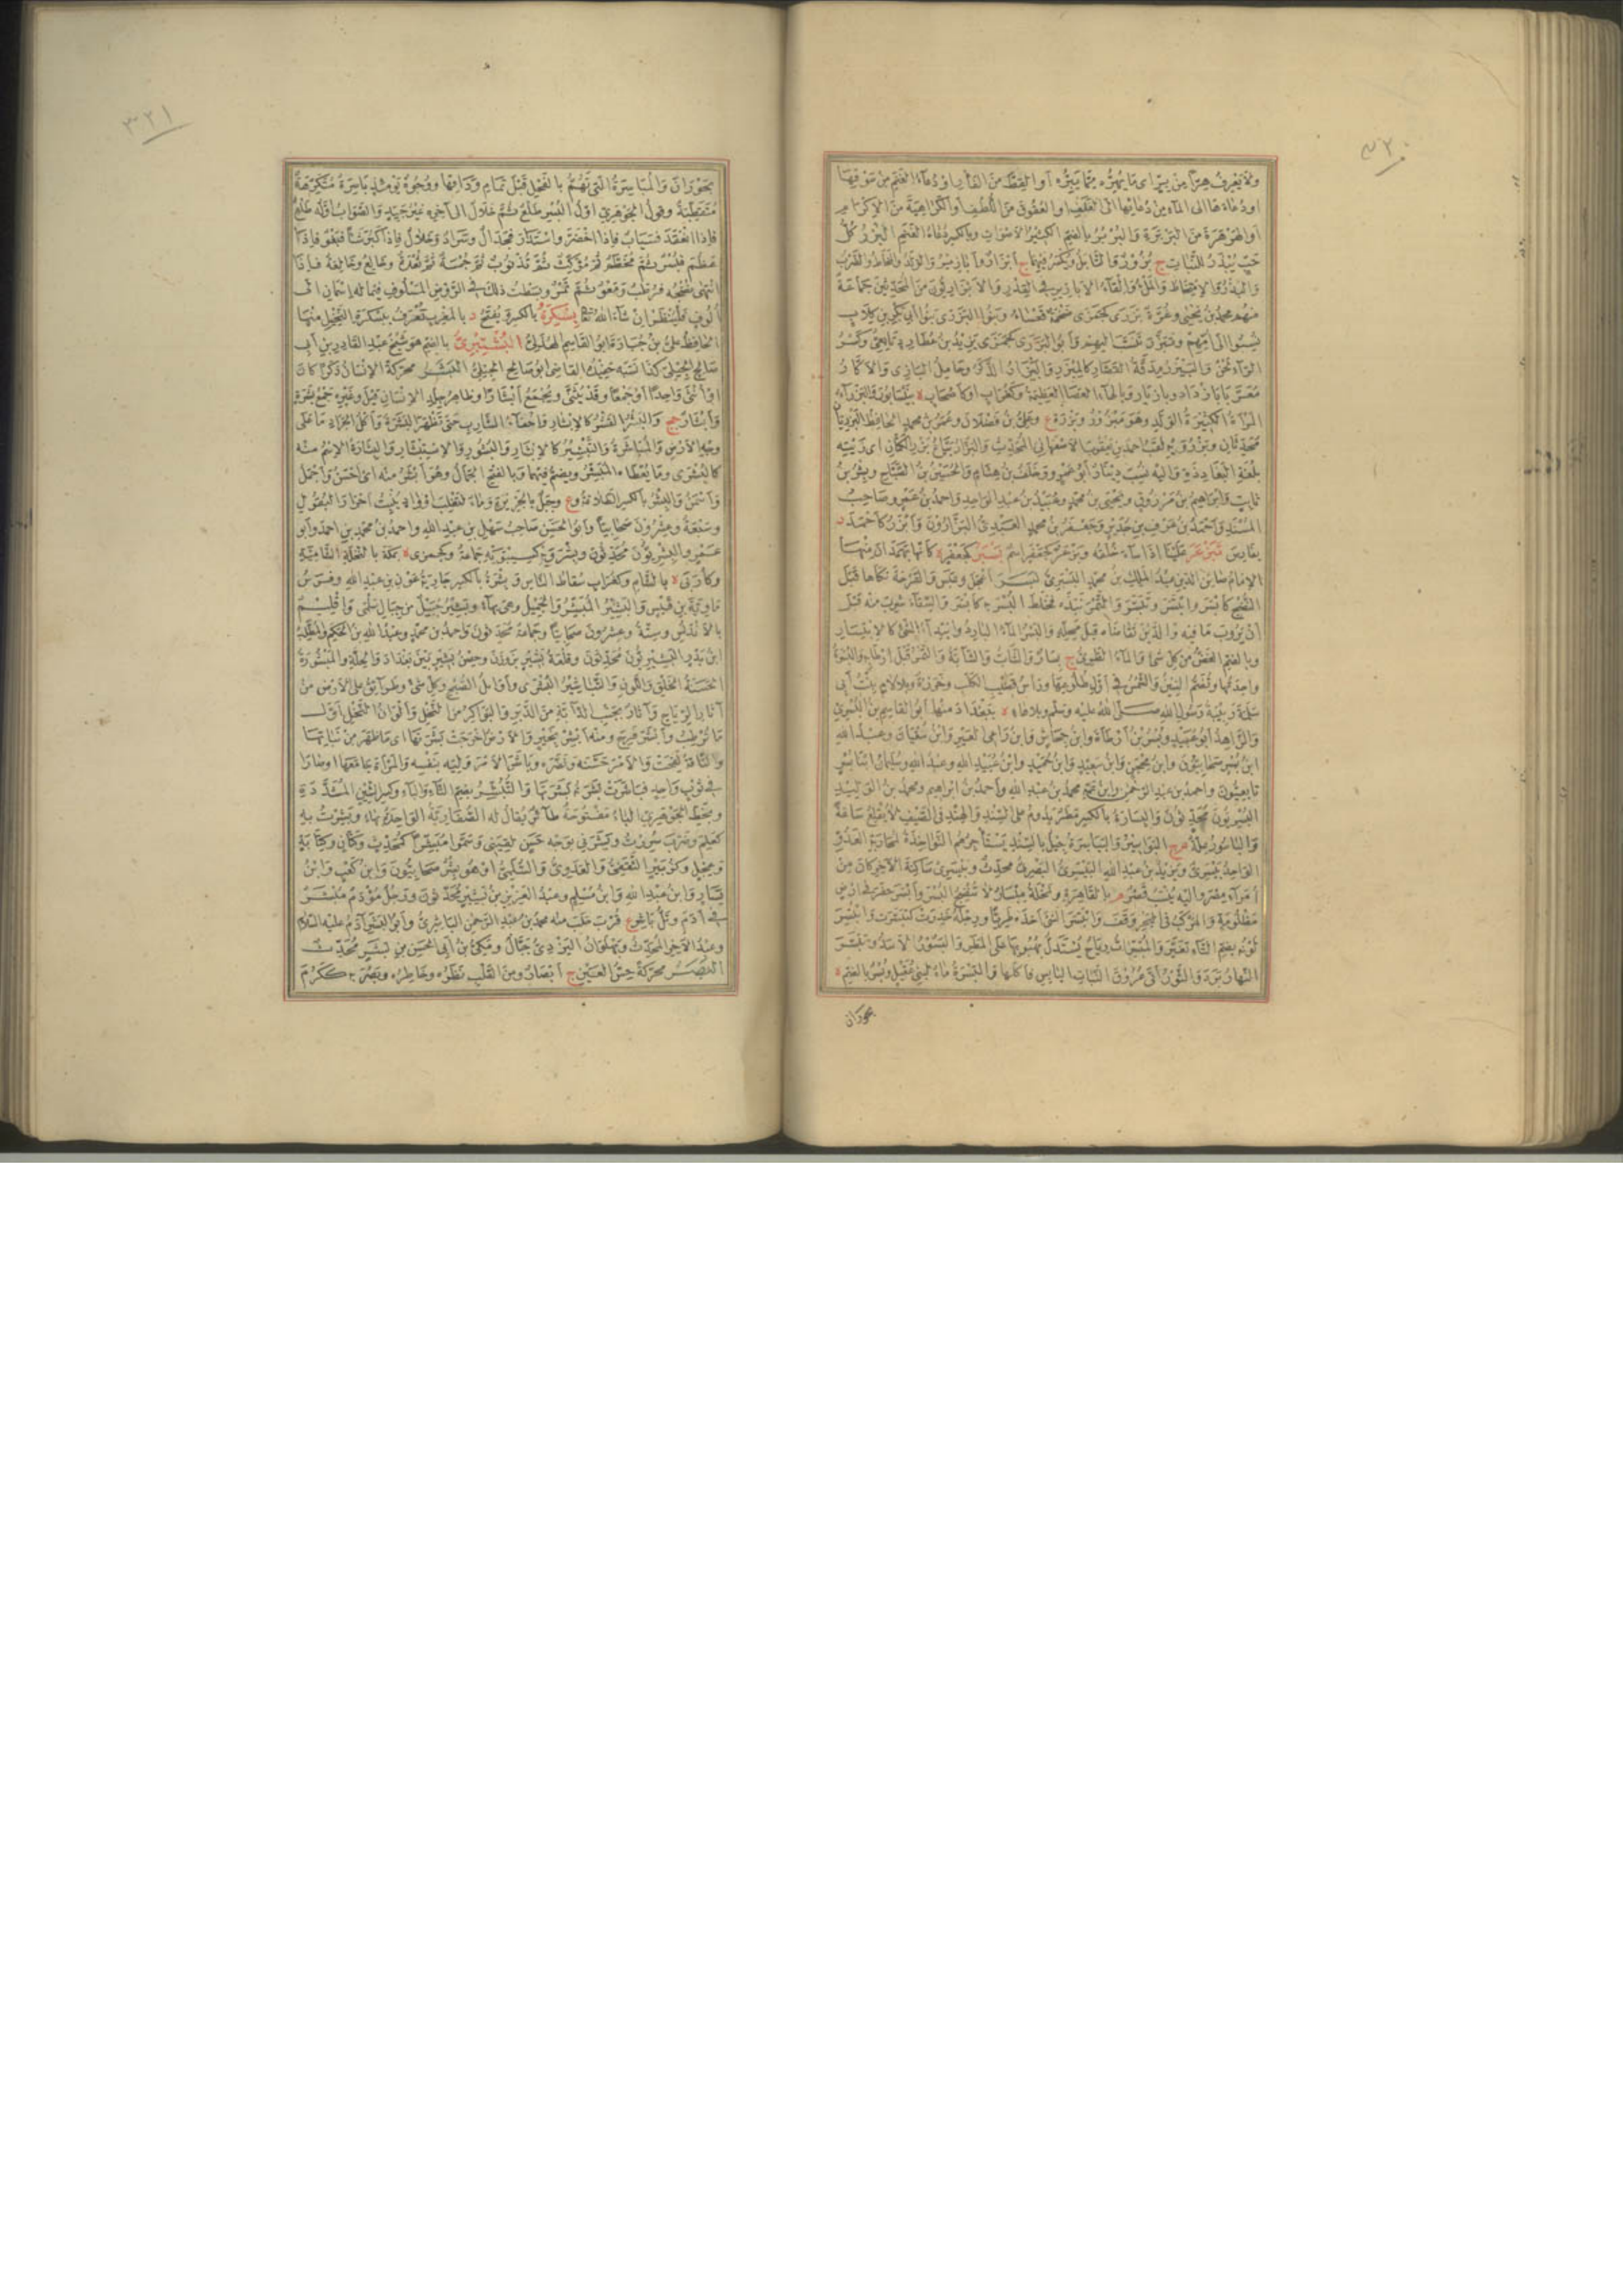 ٣٢٠
ولا يَعْرِفُ هِرًّا مِنْ بِرٍّ اى مَا يَهِرُّه مِمَّا يَبِرُّه أو القِطَّ مِنَ الفَأرِ او دُعاءَ الغَنَمِ مِنْ سَوْقِهَا
او دُعاءَهَا الى المآء مِنْ دُعائِهَا الى العَلَفِ او العُقُوقَ مِنَ اللُّطفِ أو الكَرَاهِيَةَ مِنَ الإكرام
أو الهَرْهَرَةَ مِنَ البَرْبَرَةِ والبُرْبُرُ بالضم الكثيرُ الأصْوَاتِ وبالكسر دُعاءُ الغَنَمِ البَزْرُ كُلُّ
حَبٍّ يُبْذَرُ للنَّباتِ ج بُزُورٌ والتَّابَلُ ويُكْسَرُ فيهما ج أبْزَارٌ وأَبَازِيرُ والوَلَدُ والمُخَاطُ والضَّرْبُ
والبَذْرُ والامْتِخَاطُ والمَلْءُ وإلقَآءُ الأبازيرِ في القِدْرِ والأبْزَارِيُّونَ مِنَ المُحَدِّثِينَ جَمَاعَةٌ
مِنْهُم محمدُ بنُ يَحْيَى وعِزَّةٌ بَزَرَى كجَمَزَى ضَخْمَةٌ قَعْسَاءُ وبَنُو البَزَرَى بَنُو أبي بَكْرِ بنِ كِلَابٍ
نُسِبُوا الى أُمِّهِمْ وتَبَزَّرَ تَنَسَّبَ اليهِم وأبو البَزَرَى كجَمَزَى يَزِيدُ بنُ عُطَارِدٍ تَابِعِىٌّ وكَسْرُ
الرآءِ لَحْنٌ والبَيْزَرُ مِدَقَّةُ القَصَّارِ كالمِبْزَرِ والبَيْزَارُ الذَّكَرُ وحَامِلُ البَازِى والأكَّارُ
مُعَرَّبَا بَازْدَارْ وبازْيَارْ وبالهاءِ العَصَا العَظِيمَةُ وكغُرَابٍ أو كأصْحَابٍ ة بِنَيْسَابُورَ والبَزْرَآءُ
المَرْأةُ الكَثِيرَةُ الوَلَدِ وهو مَبْزُورٌ وبَزْرَةُ ع وعَلِىُّ بنُ فَضْلَانَ وعُمَرُ بنُ محمدٍ الحافِظُ البَزْرِيَّانِ
بلُغَةِ البَغَادِدَةِ واليه نُسِبَ دِينَارٌ أبُو عُمَرَ وخَلَفُ بنُ هِشَامٍ والحَسَنُ بنُ الصَّبَّاحِ وبِشْرُ بنُ
ثابِتٍ وإبراهيمُ بنُ مَرْزُوقٍ ويحيى بنُ محمدٍ وعُبَيْدُ بنُ عبدِ الواحِدِ وأحمدُ بنُ عَمْرٍو صَاحِبُ
المُسْنَدِ وأحمدُ بنُ عَوْفِ بنِ حُدَيْرٍ وجَعْفَرُ بنُ محمدٍ العَبْدِىُّ البَزَّارُونَ وأَبْزَرُ كأحْمَدَ د
بفَارِسَ تَبَزْعَرَ عَلَيْنَا إذا سآءَ خُلُقُه وبَزْعَرُ كجَعْفَرٍ اسمٌ بَسْتَبَرُ كجَعْفَرٍ ة
النُّضْجِ كأبْسَرَ والبُسْرُ
أنْ يَرُوبَ مَا فِيه والدَّيْنَ تَقَاضَاه قبلَ مَحِلِّه والبَسْرُ المآءُ البارِدُ وابْتِدَآءُ الشَّىْءِ كالابْتِسَارِ
وبالضم الغَضُّ مِنْ كُلِّ شىءٍ والمآءُ الطَّرِىُّ ج بِسَارٌ والشَّابُّ والشَّابَّةُ والتَّمْرُ قَبلَ إرْطَابِه والبُسْرَةُ
واحِدَتُهَا وتُضَمُّ السِّينُ والشَّمْسُ في أوَّلِ طُلُوعِهَا ورَأسُ قَضِيبِ الكَلْبِ وخَرَزَةٌ وبِلَا لامٍ بِنْتُ أبي
سَلَمَةَ رَبِيبَةُ رَسُولِ اللهِ صَلَّى اللهُ عليه وسلم وبلا هاءٍ ة بِبَغْدَادَ منها أبو القاسِمِ بنُ البُسْرِىِّ
والزَّاهِدُ أبو عُبَيْدٍ وبُسْرُ بنُ أرْطَاةَ وابنُ جِحَاشٍ وابنُ راعِى العَيْرِ وابنُ سُفْيَانَ وعبدُ اللهِ
ابنُ بُسْرٍ صَحَابِيُّونَ وابنُ مِحْجَنٍ وابنُ سَعِيدٍ وابنُ حُمَيْدٍ وابنُ عُبَيْدِ اللهِ وعبدُ اللهِ وسُلَيْمَانُ ابْنَا بُسْرٍ
تابِعِيُّونَ وأحمدُ بنُ عبدِ الرَّحْمٰنِ وابنُ عَمِّه محمدُ بنُ عبدِ اللهِ وأحمدُ بنُ إبراهيمَ ومحمدُ بنُ الوَلِيدِ
البُسْرِيُّونَ مُحَدِّثُونَ والبِسَارَةُ بالكسر مَطَرٌ يَدُومُ على السِّنْدِ والهِنْدِ في الصَّيْفِ لا يُقْلِعُ سَاعَةً
والباسُورُ عِلَّةٌ م ج البَوَاسِيرُ والبَيَاسِرَةُ جِيلٌ بالسِّنْدِ يَسْتَأْجِرُهُمُ النَّوَاخِذَةُ لمُحَارَبَةِ العَدُوِّ
الواحِدُ بَيْسَرِىٌّ ويَزِيدُ بنُ عبدِ اللهِ البَيْسَرِىُّ البَصْرِىُّ محدِّثٌ وبَيْسَرِىٌّ سَاكِنَةَ الآخِرِ كانَ مِنْ
أُمَرَآءِ مِصْرَ واليه يُنْسَبُ قَصْرٌ م بالقاهِرَةِ ونَخْلَةٌ مِبْسَارٌ لا تُنْضِجُ البُسْرَ وأبْسَرَ حَفَرَ في أرْضٍ
مَظْلُومَةٍ والمَرْكَبُ في البَحْرِ وَقَفَ وابْتَسَرَ الشىءَ أخَذَه طَرِيًّا ورِجْلُه خَدِرَتْ كتَبَسَّرَتْ وابْتُسِرَ
لَوْنُه بضم التَّاءِ تَغَيَّرَ والمُبْسِرَاتُ رِيَاحٌ يُسْتَدَلُّ بهُبُوبِهَا على المَطَرِ والبَسُورُ الأسَدُ وتَبَسَّرَ
النَّهَارُ بَرَدَ والثَّوْرُ أتَى عُرُوقَ النَّبَاتِ اليابِسِ فأكَلَهَا والبَسْرَةُ مَاءٌ لبَنِى عُقَيْلٍ وبُسْرٌ بالضم ة
بحوران
٣٢١
بحَوْرَانَ والمُبَاسِرَةُ التى تَهُمُّ بالفَحْلِ قَبْلَ تَمَامِ وِدَاقِهَا ووُجُوهٌ يَوْمَئِذٍ بَاسِرَةٌ مُتَكَرِّهَةٌ
مُتَقَطِّبَةٌ وقولُ الجَوْهَرِىِّ أوَّلُ البُسْرِ طَلْعٌ ثم خَلَالٌ الى آخِرِه غَيْرُ جَيِّدٍ والصَّوَابُ أوَّلُه طَلْعٌ
فإذا انْعَقَدَ فسَيَابٌ فإذا اخْضَرَّ واسْتَدَارَ فجَدَالٌ وسَرَادٌ وخَلَالٌ فإذا كَبِرَ شَيْئًا فبَغْوٌ فإذا
عَظُمَ فبُسْرٌ ثم مُخَطَّمٌ ثم مُوَكِّتٌ ثم تُذْنُوبٌ ثم جُمْسَةٌ ثم ثَعْدَةٌ وخالِعٌ وخالِعَةٌ فإذا
انْتَهَى نُضْجُه فرُطَبٌ ومَعْوٌ ثم تَمْرٌ وبَسَطْتُ ذلك في الرَّوْضِ المَسْلُوفِ فيما له اسْمَانِ الى
أُلُوفٍ فلْيُنْظَرْ إنْ شآءَ اللهُ تعالى بِسْكِرَةُ بالكسر ويُفْتَحُ د بالمَغْرِبِ تُعْرَفُ ببِسْكِرَةِ النَّخِيلِ منها
الحافِظُ عَلِىُّ بنُ جُبَارَةَ أبو القاسِمِ الهُذَلِىُّ البُشْتِيرِىُّ بالضم هو شَيْخُ عبدِ القادِرِ بنِ أبي
صالِحٍ الجِيلِىُّ كذا نَسَبَه حَفِيدُه القاضى أبو صالِحٍ الجِيلِىُّ البَشَرُ محرَّكةً الإنْسَانُ ذَكَرًا كانَ
أوْ أُنْثَى واحِدًا أوْ جَمْعًا وقد يُثَنَّى ويُجْمَعُ أبْشَارًا وظاهِرُ جِلْدِ الإنْسانِ قيل وغَيْرِه جَمْعُ بَشَرَةٍ
وأبْشَارٌ جج والبَشْرُ القَشْرُ كالإبْشَارِ وإحْفَاءُ الشَّارِبِ حتى تَظْهَرَ البَشَرَةُ وأكْلُ الجَرَادِ ما على
وجهِ الأرْضِ والمُبَاشَرَةُ والتَّبْشِيرُ كالإبْشَارِ والبُشُورِ والاسْتِبْشَارِ والبِشَارَةُ الاسْمُ منه
كالبُشْرَى وما يُعْطَاه المُبَشِّرُ ويضمُّ فيهما وبالفتح الجَمَالُ وهو أبْشَرُ منه اى أحْسَنُ وأجْمَلُ
وأسْمَنُ والبِشْرُ بالكسر الطَّلاقَةُ وع وجَبَلٌ بالجَزِيرَةِ ومَاءٌ لتَغْلِبَ
وسَبْعَةٌ وعِشْرُونَ صَحَابيًّا وأبو الحَسَنِ صَاحِبُ سَهْلِ بنِ عبدِ اللهِ وأحمدُ بنُ محمدِ بنِ أحمدَ وأبو
عَمْرٍو البِشْرِيُّونَ مُحَدِّثُونَ وبِشْرَوَيْهِ كسِيبَوَيْهِ جَمَاعَةٌ وكجَمَزَى ة بمَكَّةَ بالنَّخْلَةِ الشَّامِيَّةِ
وكأُرَبَى ة بالشَّامِ وكغُرَابٍ سُقَاطُ النَّاسِ وبِشْرَةُ بالكسر جارِيَةُ عَوْنِ بنِ عبدِ اللهِ وفَرَسُ
مَاوِيَةَ بنِ قَيْسٍ والبَشِيرُ المُبَشِّرُ والجَمِيلُ وهى بهاءٍ وبَشِيرٌ جَبَلٌ مِنْ جِبَالِ سَلْمَى وإقْلِيمٌ
بالأنْدَلُسِ وسِتَّةٌ وعِشْرُونَ صَحَابيًّا وجَمَاعَةٌ مُحَدِّثُونَ وأحمدُ بنُ محمدٍ وعبدُ اللهِ بنُ الحَكَمِ والمُطَّلِبُ
ابنُ بَدْرٍ البَشِيرِيُّونَ مُحَدِّثُونَ وقَلْعَةُ بَشِيرٍ بزَوْزَنَ وحِصْنُ بَشِيرٍ بَيْنَ بَغْدَادَ والحِلَّةِ والمَبْشُورَةُ
الحَسَنَةُ الخَلْقِ واللَّوْنِ والتَّبَاشِيرُ البُشْرَى وأوَائِلُ الصُّبْحِ وكُلِّ شىءٍ وطَرَآئِقُ على الأرْضِ مِنْ
آثارِ الرِّيَاحِ وآثارٌ بجَنْبِ الدَّآبَّةِ مِنَ الدَّبَرِ والبَوَاكِرُ مِنَ النَّخْلِ وألْوَانُ النَّخْلِ أوَّلَ
مَا تُرْطِبُ وأبْشَرَ فَرِحَ ومنه أبْشِرْ بخَيْرٍ والأرْضُ أخْرَجَتْ بَشَرَتَهَا اى ما ظَهَرَ مِنْ نَبَاتِهَا
والنَّاقَةُ لَقِحَتْ والأمْرَ حَسَّنَه ونَضَّرَه وباشَرَ الأمْرَ وَلِيَه بنَفْسِه والمَرْأةَ جامَعَهَا او صَارَا
في ثَوْبٍ واحِدٍ فبَاشَرَتْ بَشَرَتُه بَشَرَتَهَا والتُّبُشِّرُ بضم التَّاءِ والبَاءِ وكسرِ الشينِ المُشَدَّدَةِ
وبخَطِّ الجَوْهَرِىِّ الباءُ مَفْتُوحَةٌ طآئِرٌ يُقالُ له الصُّفَارِيَّةُ الواحِدَةُ بهاءٍ وبَشِرْتُ به
كعَلِمَ وضَرَبَ سُرِرْتُ وبَشَرَنِى بوَجْهٍ حَسَنٍ لَقِيَنِى وسَمَّوْا مُبَشِّرًا كمُحَدِّثٍ وكَتَّانٍ وكِتَابَةٍ
وعِجْلٍ وكزُبَيْرٍ الثَّقَفِىُّ والعَدَوِىُّ والسُّلَمِىُّ أو هو بِشْرٌ صَحَابِيُّونَ وابنُ كَعْبٍ وابنُ
يَسَارٍ وابنُ عبدِ اللهِ وابنُ مُسْلِمٍ وعبدُ العَزِيزِ بنُ بُشَيْرٍ مُحَدِّثُونَ ورَجُلٌ مُؤْدَمٌ مُبْشَرٌ
في أ د م وتَلُّ بَاشِرٍ ع قُرْبَ حَلَبَ منه محمدُ بنُ عبدِ الرحمٰنِ الباشِرِىُّ وأبو البَشَرِ آدَمُ عليه السلام
وعبدُ الآخِرِ المُحَدِّثُ وبَهْلَوَانُ اليَزْدِىُّ دَجَّالٌ ومَكِّىُّ بنُ أبي الحَسَنِ بنِ بَشَرٍ مُحَدِّثٌ
البَصَرُ محرَّكةً حِسُّ العَيْنِ ج أبْصَارٌ ومِنَ القَلْبِ نَظَرُه وخاطِرُه وبَصُرَ به ككَرُمَ